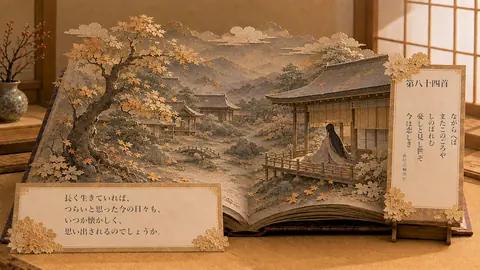 第八十四首
ながらへば
またこのごろや
しのばれむ
憂しと見し世ぞ
今は恋しき
長く生きていれば、
つらいと思った今の日々も、
いつか懐かしく、
思い出されるのでしょうか。